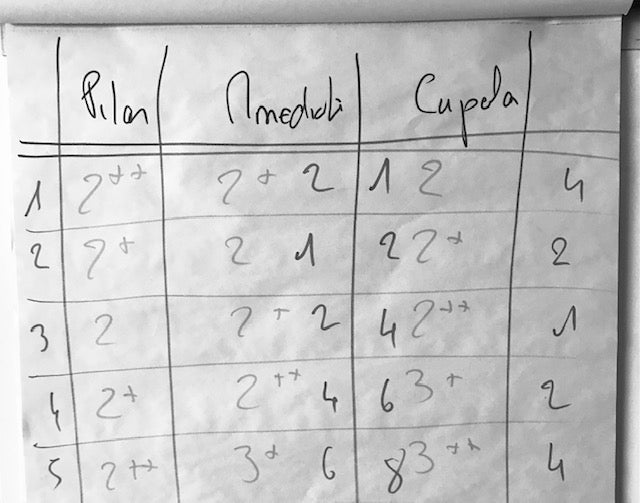 Pilar Amediati Cupola
1 2++ 2+ 2 1 2 4
2 2+ 2 1 2 2+ 2
3 2 2+ 2 4 2++ 1
4 2+ 2++ 4 6 3+ 2
5 2++ 3+ 6 8 3++ 4